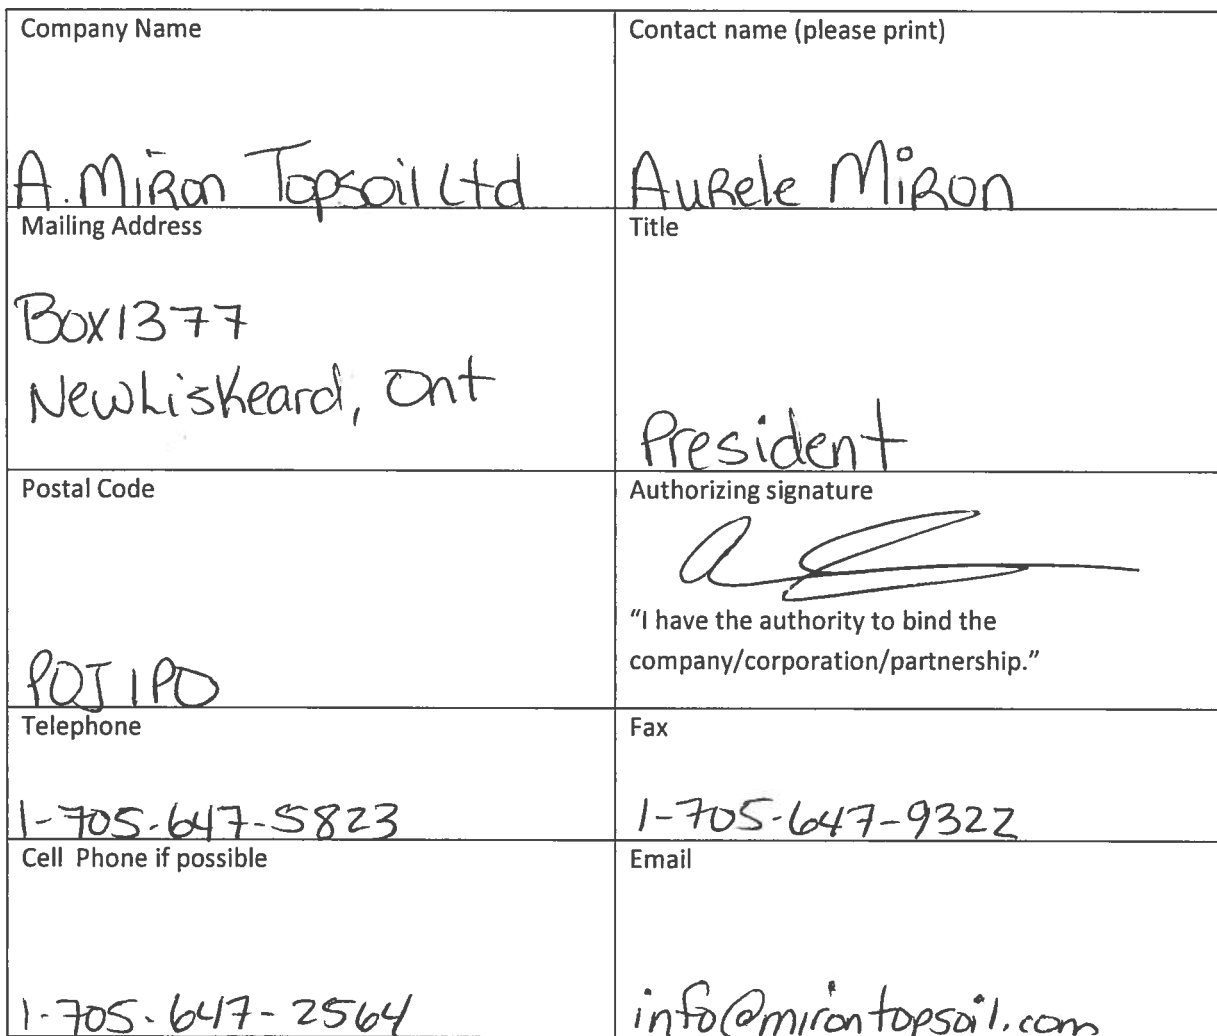 Company Name
A. Miron Topsoil Ltd
Contact name (please print)
Aurele Miron
Mailing Address
Box 1377
New Liskeard, Ont
Title
President
Postal Code
P0J 1P0
Authorizing signature
"I have the authority to bind the
company/corporation/partnership."
Telephone
1-705-647-5823
Fax
1-705-647-9322
Cell Phone if possible
1-705-647-2564
Email
info@mirontopsoil.com